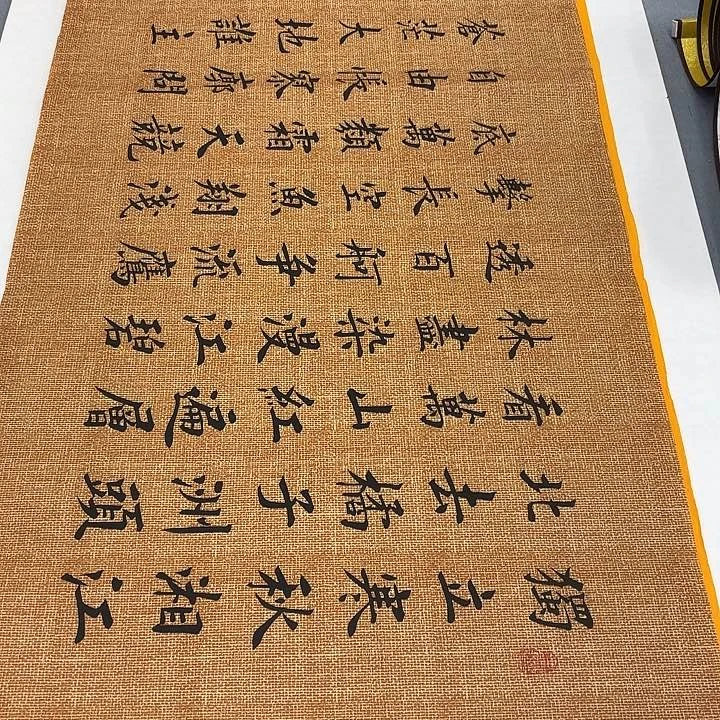 獨立寒秋湘江
北去橘子洲頭
看萬山紅遍層
林盡染漫江碧
透百舸争流鷹
擊長空魚翔淺
底萬類霜天競
自由悵寥廓問
蒼茫大地誰主